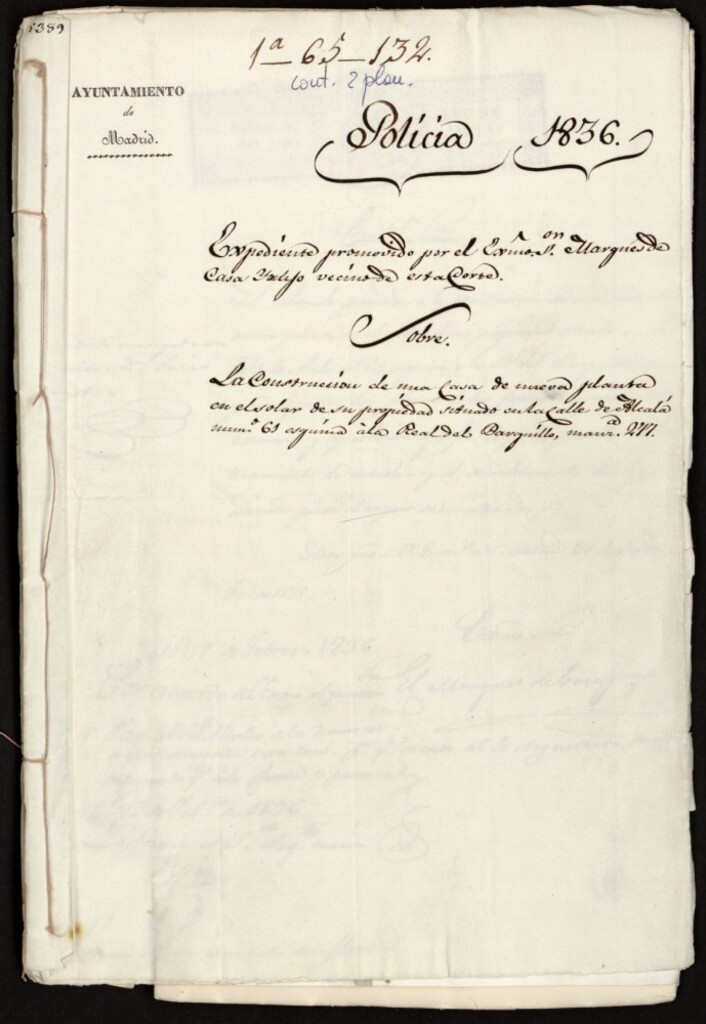 5389
1ª-65-132.
cont. 2 plan.
AYUNTAMIENTO
de
Madrid.
Policia 1836.
Expediente promovido por el Exmo. Sor. Marques de
Casa Yrujo vecino de esta Corte.
Sobre.
La Construccion de una Casa de nueva planta
en el solar de su propiedad situado en la Calle de Alcalá
num.º 61 esquina à la Real del Barquillo, manz.ª 277.